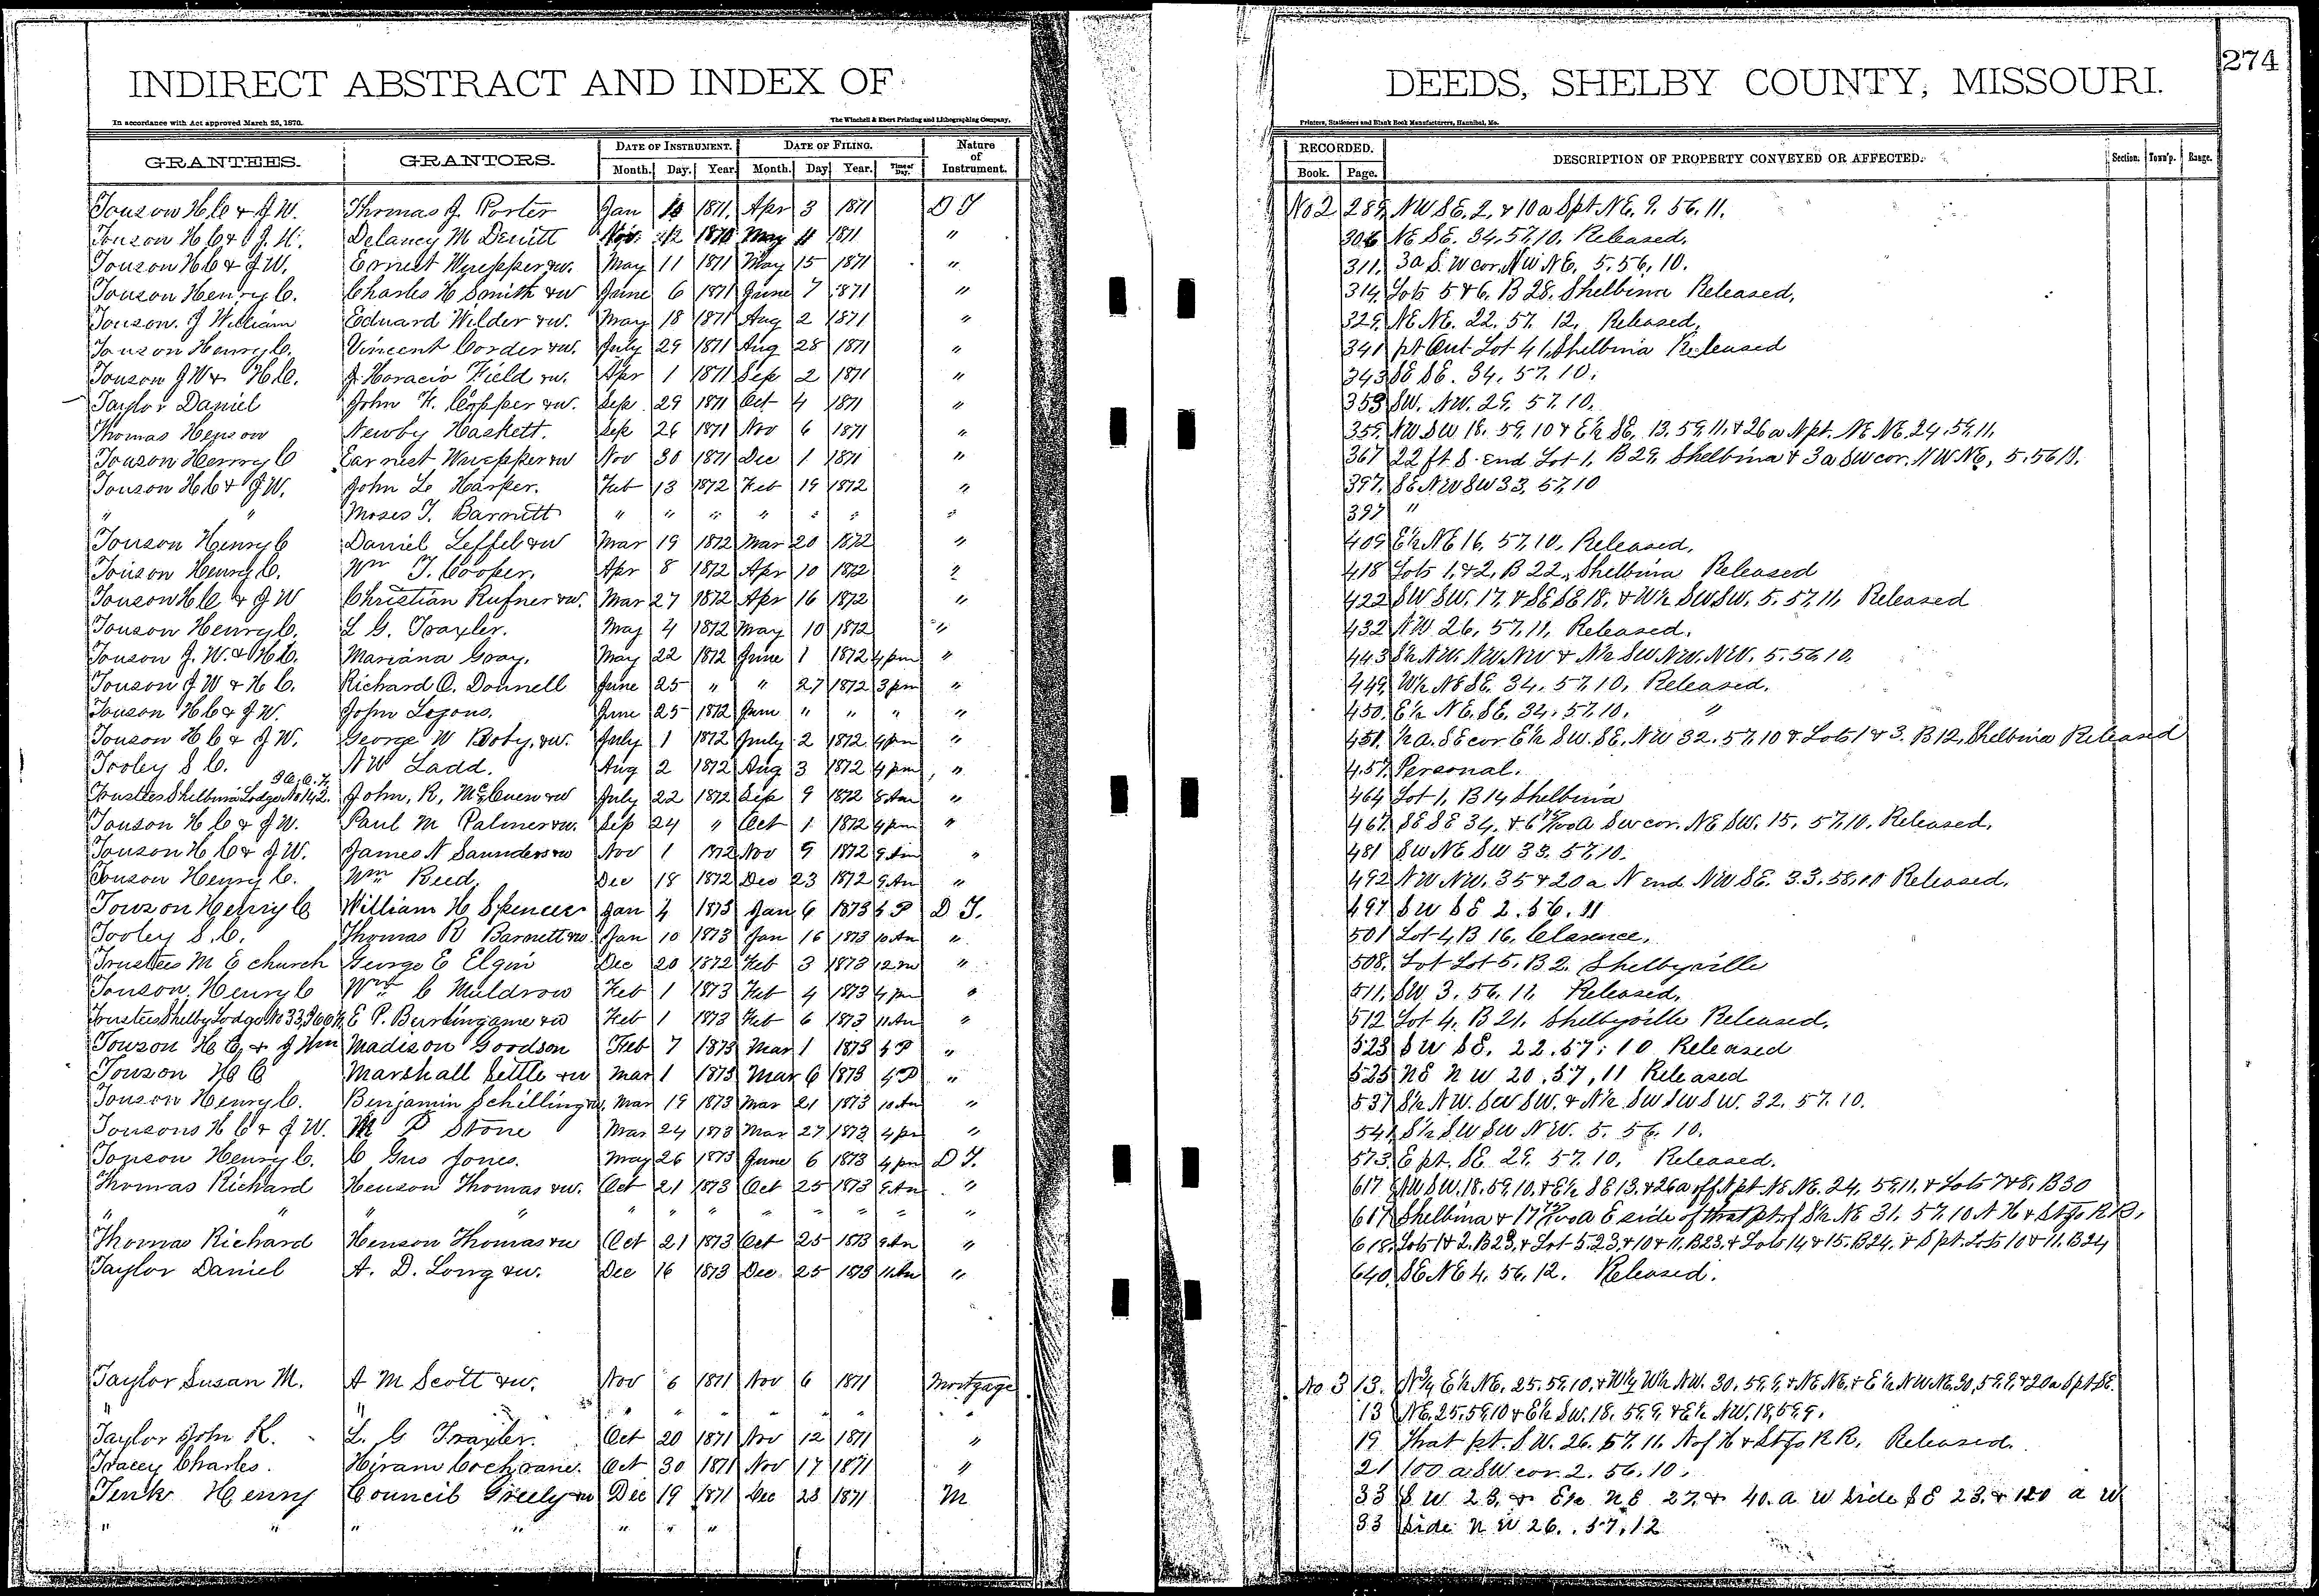 274
INDIRECT ABSTRACT AND INDEX OF DEEDS, SHELBY COUNTY, MISSOURI.
In accordance with Act approved March 25, 1870. The Winchell & Ebert Printing and Lithographing Company, Printers, Stationers and Blank Book Manufacturers, Hannibal, Mo.
GRANTEES. GRANTORS. DATE OF INSTRUMENT. DATE OF FILING. Nature of Instrument. RECORDED. DESCRIPTION OF PROPERTY CONVEYED OR AFFECTED. Section. Town'p. Range.
Month. Day. Year. Month. Day Year. Time of Day. Book. Page.
Touson H C & J W. Thomas J. Porter Jan 1871. Apr 3 1871 D T No 2 289, NW SE. 2. & 10 a S pt NE. 9. 56. 11.
Touson H C & J. W. Delancy M Dewitt Nov. 12 1870 May 11 1871 " 306 NE SE. 34. 57. 10. Released.
Touson H C & J W. Ernest Wuepper &w. May 11 1871 May 15 1871 " 311. 3a S. W cor. NW NE. 5. 56. 10.
Touson Henry C. Charles H Smith &w June 6 1871 June 7 1871 " 314, Lots 5 & 6. B 28. Shelbina Released.
Touson. J William Eduard Wilder &w. May 18 1871 Aug 2 1871 " 329. NE NE. 22. 57. 12. Released.
Touson Henry C. Vincent Corder &w. July 29 1871 Aug 28 1871 " 341 pt Out Lot 41, Shelbina Released
Touson J W & H C. J. Horacio Field &w. Apr 1 1871 Sep 2 1871 " 343 SE SE. 34. 57. 10.
Taylor Daniel John F. Copper &w. Sep 29 1871 Oct 4 1871 " 353 SW. NW. 29. 57. 10.
Thomas Henson Newby Haskett. Sep 26 1871 Nov 6 1871 " 359. NW SW 18. 59. 10 & E½ SE. 13. 59. 11. & 26 a N pt. NE NE. 24. 59. 11.
Touson Henry C Earnest Wuepper &w Nov 30 1871 Dec 1 1871 " 367 22 ft S. end Lot 1. B 29. Shelbina & 3a SW cor. NW NE. 5. 56
Touson H C & J W. John L. Harper. Feb 13 1872 Feb 19 1872 " 397. SE NW SW 33. 57. 10
" " Moses T. Barnett " " " " " " " 397 "
Touson Henry C Daniel Leffel &w Mar 19 1872 Mar 20 1872 " 409 E½ NE 16. 57. 10. Released.
Touson Henry C. Wm T. Cooper. Apr 8 1872 Apr 10 1872 " 418 Lots 1. & 2. B 22. Shelbina Released
Touson H C & J W Christian Rufner &w. Mar 27 1872 Apr 16 1872 " 422 SW SW. 17. & SE SE 18. & W½ SW SW. 5. 57. 11. Released
Touson Henry C. L G. Traxler. May 4 1872 May 10 1872 " 432 NW 26. 57. 11. Released.
Touson J. W. & H C. Mariana Gray. May 22 1872 June 1 1872 4 pm " 443 S½ NW. NW. NW & N½ SW NW. NW. 5. 56. 10.
Touson J W & H C. Richard O. Donnell June 25 " " 27 1872 3 pm " 449. W½ NE SE. 34. 57. 10. Released.
Touson H C & J W. John Logons. June 25 1872 June " " " " 450. E½ NE. SE. 34. 57. 10. "
Touson H C & J W. George W Boty. &w. July 1 1872 July 2 1872 4 pm " 451. ½ a. SE cor E½ SW. SE. NW 32. 57. 10 & Lots 1 & 3. B 12. Shelbina Released
Tooley S C. N W Ladd. Aug 2 1872 Aug 3 1872 4 pm " 457. Personal.
Trustees Shelbina Lodge No 142. John. R. McCuen &w July 22 1872 Sep 9 1872 8 Am " 464 Lot 1. B 14 Shelbina
Touson H C & J W. Paul M Palmer &w. Sep 24 " Oct 1 1872 4 pm " 467. SE SE 34. & a SW cor. NE SW. 15. 57. 10. Released.
Touson H C & J W. James N Saunders &w Nov 1 1872 Nov 9 1872 9 Am " 481 SW NE SW 33. 57. 10.
Touson Henry C. Wm Reed. Dec 18 1872 Dec 23 1872 9 Am " 492 NW NW. 35 & 20 a. N end. NW SE. 33. 58. 10 Released.
Touson Henry C William H Spencer Jan 4 1873 Jan 6 1873 5 P D T. 497 SW SE 2. 56. 11
Tooley S. C. Thomas R Barnett &w. Jan 10 1873 Jan 16 1873 10 Am " 501 Lot 4, B 16. Clarence.
Trustees M E church George E Elgin Dec 20 1872 Feb 3 1873 12 m " 508. Lot Lot 5. B 2. Shelbyville
Touson. Henry C Wm C Muldrow Feb 1 1873 Feb 4 1873 4 pm " 511. SW 3. 56. 11. Released.
Trustees Shelby Lodge No 33, E P. Burlingame &w Feb 1 1873 Feb 6 1873 11 Am " 512 Lot 4. B 21. Shelbyville Released.
Touson H C. & J Wm Madison Goodson Feb 7 1873 Mar 1 1873 5 P " 523 SW SE. 22. 57. 10 Released
Touson H C Marshall Settle &w Mar 1 1873 Mar 6 1873 4 P " 525 NE NW 20. 57. 11 Released
Touson Henry C. Benjamin Schilling &w. Mar 19 1873 Mar 21 1873 10 Am " 537 S½ NW. SW SW. & N½ SW SW SW. 32. 57. 10.
Tousons H C & J W. M P Stone Mar 24 1873 Mar 27 1873 4 pm " 541. S½ SW SW NW. 5. 56. 10.
Touson Henry C. C Gus Jones. May 26 1873 June 6 1873 4 pm D T. 573. E pt. SE 29. 57. 10. Released.
Thomas Richard Henson Thomas &w. Oct 21 1873 Oct 25 1873 9 Am " 617 NW SW. 18. 59. 10. & E½ SE 13. & 26 a off N pt NE NE. 24. 59. 11. & Lots 7 & 8. B 30
" " " " " " " " " " " " 617 Shelbina & a E side of that pt of S½ NE 31. 57. 10 N H & St Jo R R.
Thomas Richard Henson Thomas &w Oct 21 1873 Oct 25 1873 9 Am " 618. Lots 1 & 2. B 23. & Lot 5. 23. & 10 & 11. B 23. & Lots 14 & 15. B 24. & S pt. Lots 10 & 11. B 24
Taylor Daniel A. D. Long &w. Dec 16 1873 Dec. 25 1873 11 Am " 640. SE NE 4. 56. 12. Released.
Taylor Susan M. A M Scott &w. Nov 6 1871 Nov 6 1871 Mortgage No 3 13. N¾ E½ NE. 25. 59. 10. & W½ NW. 30. 59. 9. & NE NE. & E½ NW NE. 30. 59. 9. & 20 a S pt SE.
" " " " " " " " 13 NE. 25. 59. 10 & E½ SW. 18. 59. 9. & E½ NW. 18. 59. 9.
Taylor John K. L. G Traxler. Oct 20 1871 Nov 12 1871 " 19 That pt. SW. 26. 57. 11. N of H & St Jo R R. Released.
Tracey Charles. Hiram Cochrane. Oct 30 1871 Nov 17 1871 " 21 100 a. SW cor. 2. 56. 10.
Tenk Henry Council Greely &w Dec 19 1871 Dec 23 1871 M 33 SW 23. & E½ NE 27. & 40. a W side SE 23. & 120 a W
" " " " " " " 33 side NW 26. . 57. 12